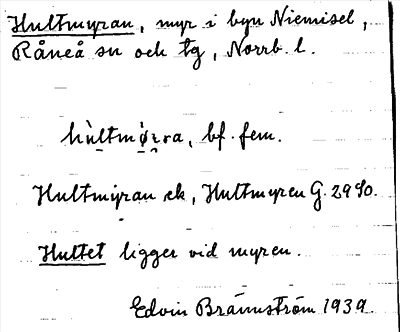 Hultmyran, myr i byn Niemisel,
Råneå sn och tg, Norrb. l.
hùltmø̀rra, bf. fem.
Hultmyran ek, Hultmyren G. 2940.
Hultet ligger vid myren.
Edvin Brännström 1939.